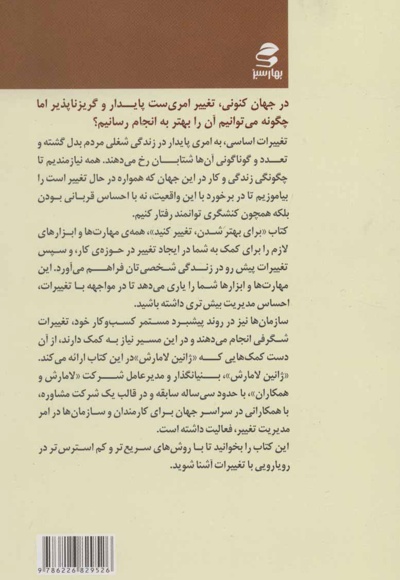 بهار سبز
در جهان کنونی، تغییر امری‌ست پایدار و گریزناپذیر اما
چگونه می‌توانیم آن را بهتر به انجام رسانیم؟
تغییرات اساسی، به امری پایدار در زندگی شغلی مردم بدل گشته و
تعدد و گوناگونی آن‌ها شتابان رخ می‌دهند. همه نیازمندیم تا
چگونگی زندگی و کار در این جهان که همواره در حال تغییر است را
بیاموزیم تا در برخورد با این واقعیت، نه با احساس قربانی بودن
بلکه همچون کنشگری توانمند رفتار کنیم.
کتاب «برای بهتر شدن، تغییر کنید»، همه‌ی مهارت‌ها و ابزارهای
لازم را برای کمک به شما در ایجاد تغییر در حوزه‌ی کار، و سپس
تغییرات پیش رو در زندگی شخصی‌تان فراهم می‌آورد. این
مهارت‌ها و ابزارها شما را یاری می‌دهد تا در مواجهه با تغییرات،
احساس مدیریت بیش‌تری داشته باشید.
سازمان‌ها نیز در روند پیشبرد مستمر کسب‌وکار خود، تغییرات
شگرفی انجام می‌دهند و در این مسیر نیاز به کمک دارند، از آن
دست کمک‌هایی که «ژانین لامارش» در این کتاب ارائه می‌کند.
«ژانین لامارش»، بنیانگذار و مدیرعامل شرکت «لامارش و
همکاران»، با حدود سی‌ساله سابقه و در قالب یک شرکت مشاوره،
با همکارانی در سراسر جهان برای کارمندان و سازمان‌ها در امر
مدیریت تغییر، فعالیت داشته است.
این کتاب را بخوانید تا با روش‌های سریع‌تر و کم استرس‌تر در
رویارویی با تغییرات آشنا شوید.
9 786226 829526